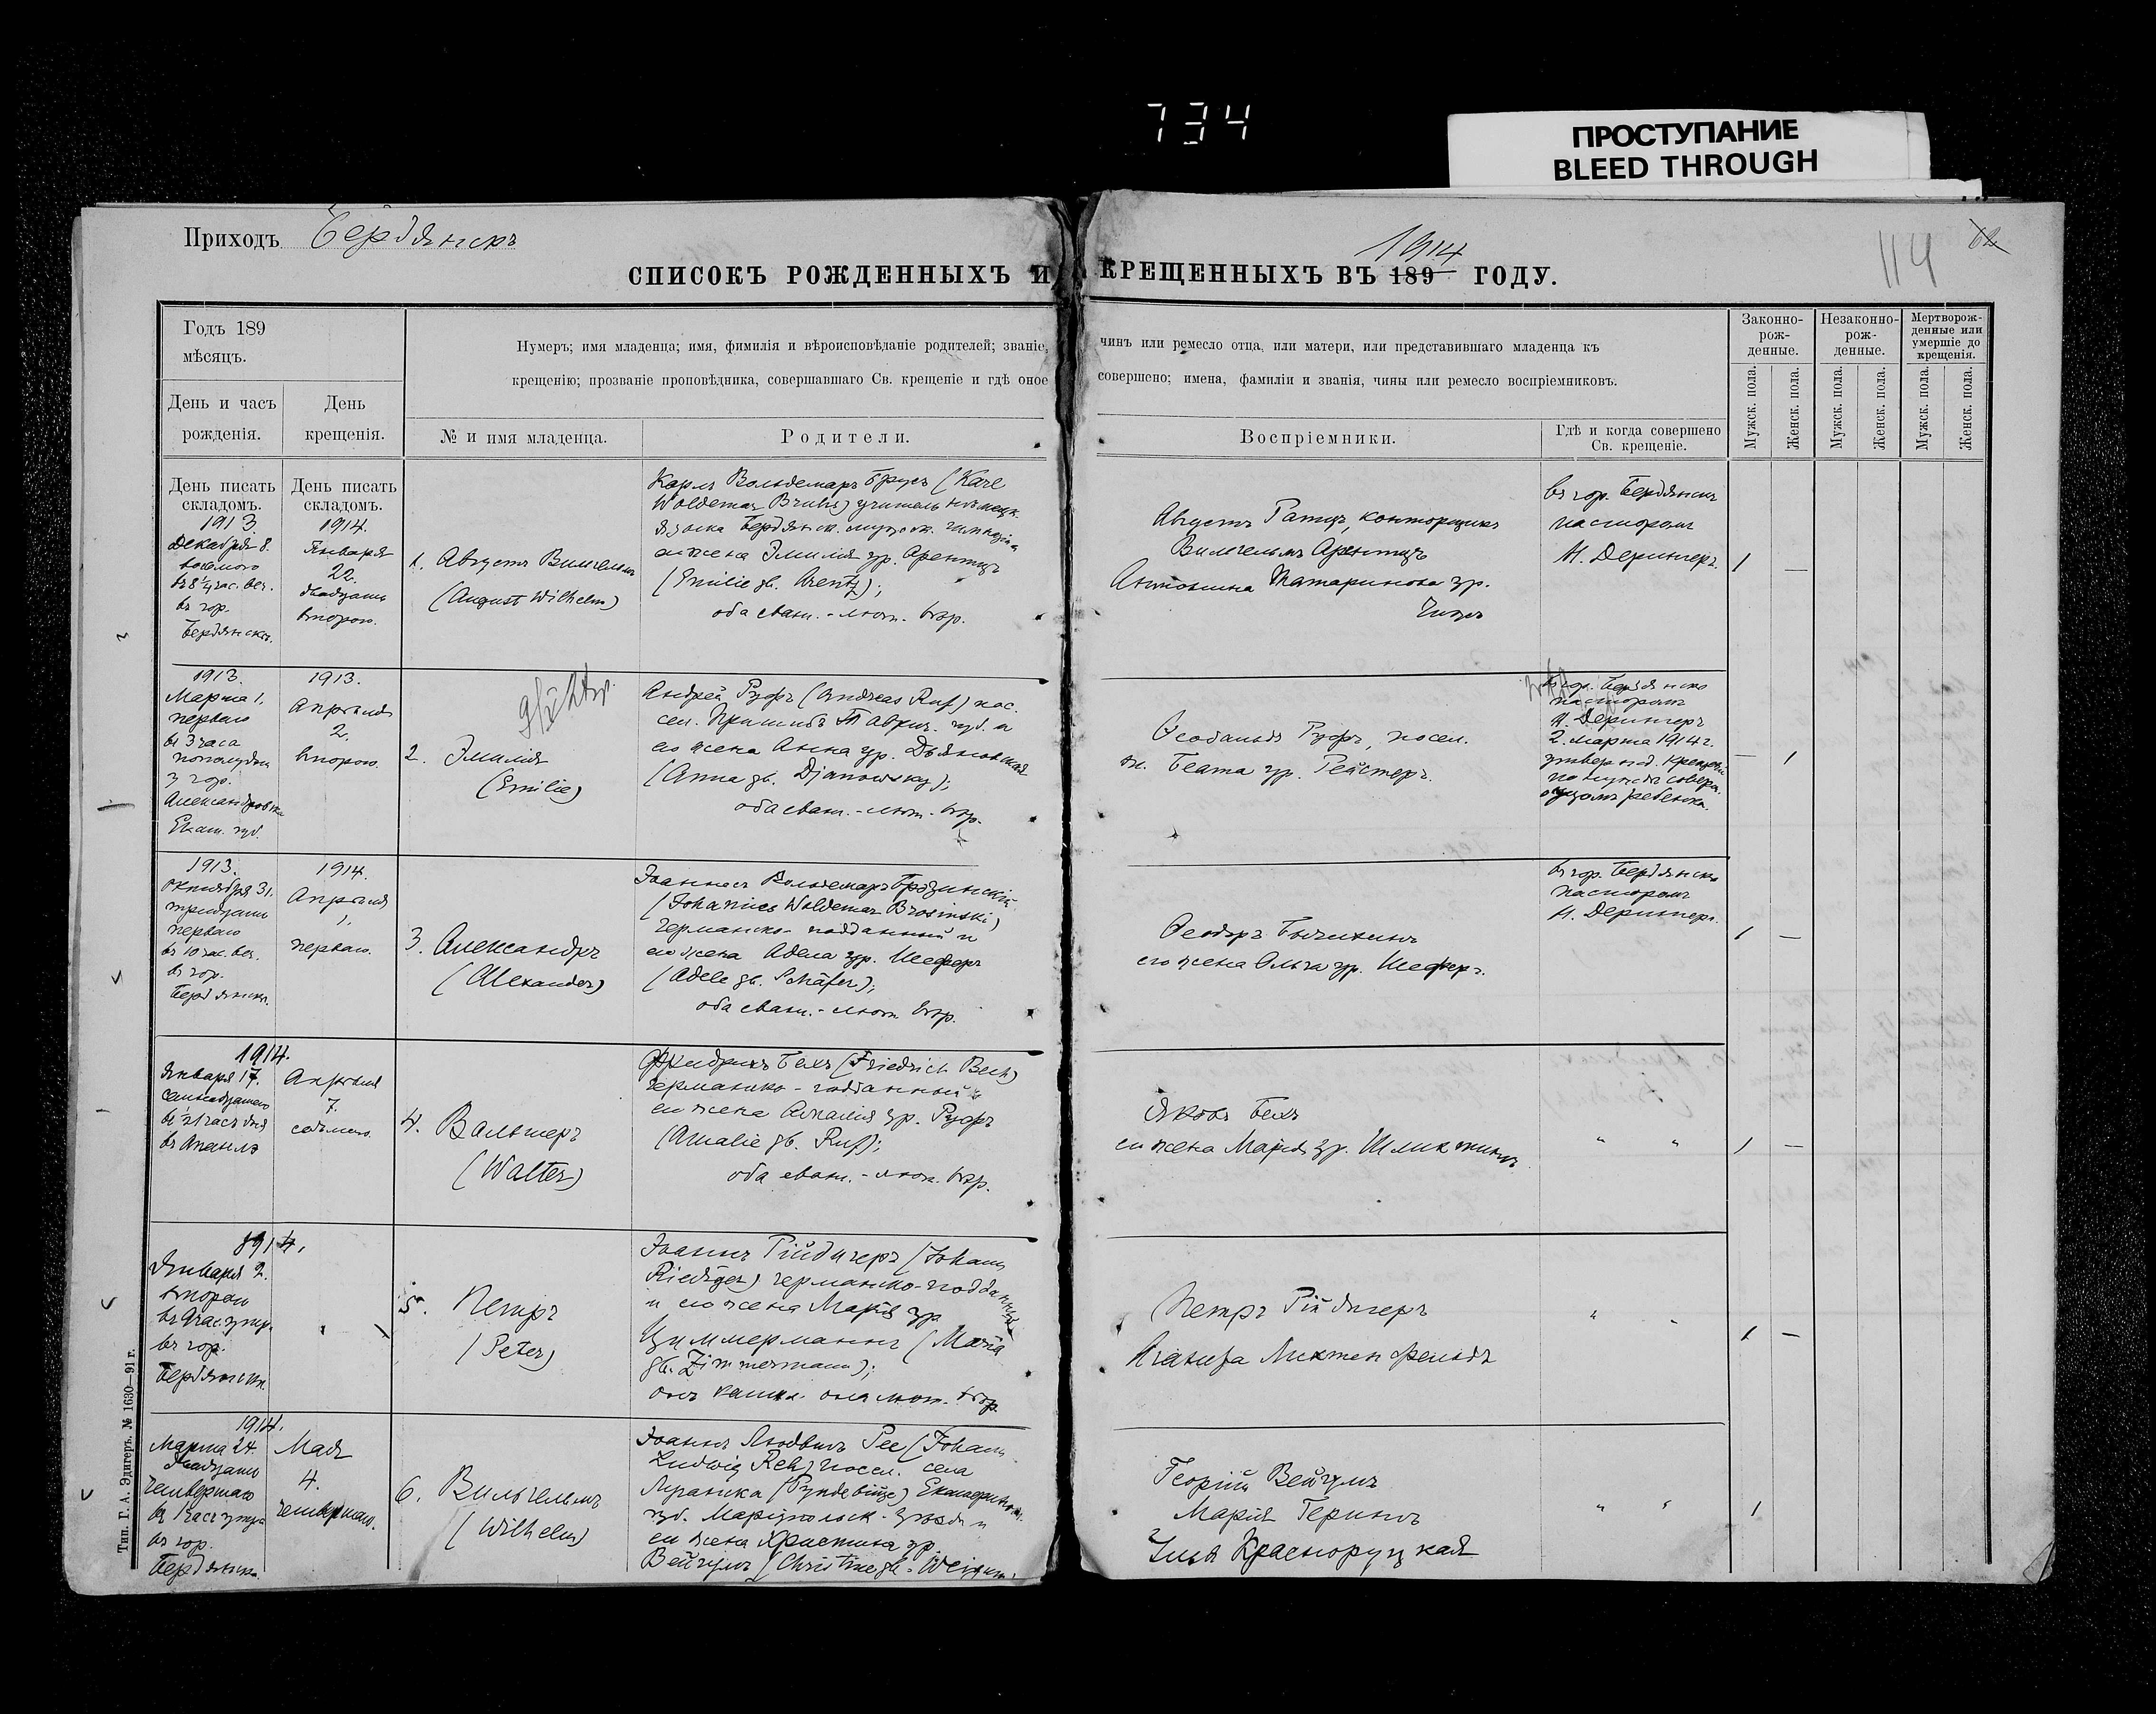 734
ПРОСТУПАНИЕ
BLEED THROUGH
Приходъ Бердянскъ
1914
114
62
СПИСОКЪ РОЖДЕННЫХЪ И КРЕЩЕННЫХЪ ВЪ 189 ГОДУ.
Годъ 189
мѣсяцъ.
Нумеръ; имя младенца; имя, фимилія и вѣроисповѣданіе родителей; званіе, чинъ или ремесло отца, или матери, или представившаго младенца къ
крещенію; прозваніе проповѣдника, совершавшаго Св. крещеніе и гдѣ оное совершено; имена, фамиліи и званія, чины или ремесло воспріемниковъ.
Законно-
рож-
денные.
Незаконно-
рож-
денные.
Мертворож-
денные или
умершіе до
крещенія.
День и часъ
рожденія.
День
крещенія.
№ и имя младенца.
Родители.
Воспріемники.
Гдѣ и когда совершено
Св. крещеніе.
Мужск. пола.
Женск. пола.
Мужск. пола.
Женск. пола.
Мужск. пола.
Женск. пола.
День писать
складомъ.
1913
Декабря 8.
восьмого
въ 8¼ час. веч.
въ гор.
Бердянскѣ.
День писать
складомъ.
1914.
Января
22.
двадцать
второго.
1. Августъ Вильгельмъ
(August Wilhelm)
Карлъ Вольдемаръ Брусъ (Karl
Woldemar Bruhs) учитель нѣмецк.
языка Бердянск. мужск. гимназіи
и жена Эмилія ур. Арентцъ
(Emilie gb. Arentz);
оба еванг.-лют. вѣр.
Августъ Ратцъ, конторщикъ
Вильгельмъ Арентцъ
Антонина Татаринова ур.
въ гор. Бердянскѣ
пасторомъ
Н. Дерингеръ.
1 —
1913.
Марта 1.
перваго
въ 3 часа
пополудни
у гор.
Александровска
Екат. губ.
1913.
Апрѣля
2.
второго.
2. Эмилія
(Emilie)
Андрей Руфъ (Andreas Ruf) пос.
сел. Пришибъ Таврич. губ. и
его жена Анна ур. Дьяновская
(Anna gb. Djanowsky);
оба еванг.-лют. вѣр.
Ѳеобальдъ Руфъ, посел.
Беата ур. Рейстеръ.
въ гор. Бердянскѣ
пасторомъ
Н. Дерингеръ
2. марта 1914 г.
— 1
1913.
Октября 31.
тридцать
перваго
въ 10 час. веч.
въ гор.
Бердянскѣ.
1914.
Апрѣля
1.
перваго.
3. Александръ
(Alexander)
Іоаннесъ Вольдемаръ Брозинскій
(Johannes Woldemar Brosinski)
германско-подданный и
его жена Адела ур. Шеферъ
(Adele gb. Schäfer);
оба еванг.-лют. вѣр.
его жена Ольга ур. Шеферъ.
въ гор. Бердянскѣ
пасторомъ
Н. Дерингеръ.
1 —
1914.
Января 17.
семнадцатаго
въ ½1 часъ дня
Апрѣля
7.
седьмого.
4. Вальтеръ
(Walter)
Фридрихъ Бехъ (Friedrich Bech)
германско-подданный и
его жена Амалія ур. Руфъ
(Amalie gb. Ruf);
оба еванг.-лют. вѣр.
Яковъ Бехъ
его жена Марія ур.
" "
1 —
1914.
Января 2.
второго
въ 9 час. утр.
въ гор.
Бердянскѣ.
5. Петръ
(Peter)
Іоаннъ Рійдигеръ (Johann
Riediger) германско-подданный
и его жена Марія ур.
Циммерманнъ (Maria
gb. Zimmermann);
онъ она лют. вѣр.
Петръ Рійдигеръ
Лихтенфельдъ
" "
1 —
1914.
Марта 24.
двадцать
четвертаго
въ 1 часъ утра
въ гор.
Бердянскѣ.
Мая
4.
четвертаго.
6. Вильгельмъ
(Wilhelm)
Іоаннъ Людвигъ Рее (Johann
Ludwig Reh) посел. села
губ. Маріупольск. уѣзда и
его жена Христина ур.
Вейгумъ (Christine gb. Weigum.
Георгій Вейгумъ
Марія Герингъ
Красноруцкая
" "
1
Тип. Г. А. Эдигеръ. № 1630—91 г.